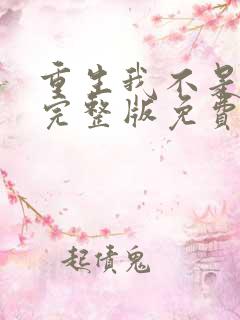 重生我不是
完整版免费
起债鬼